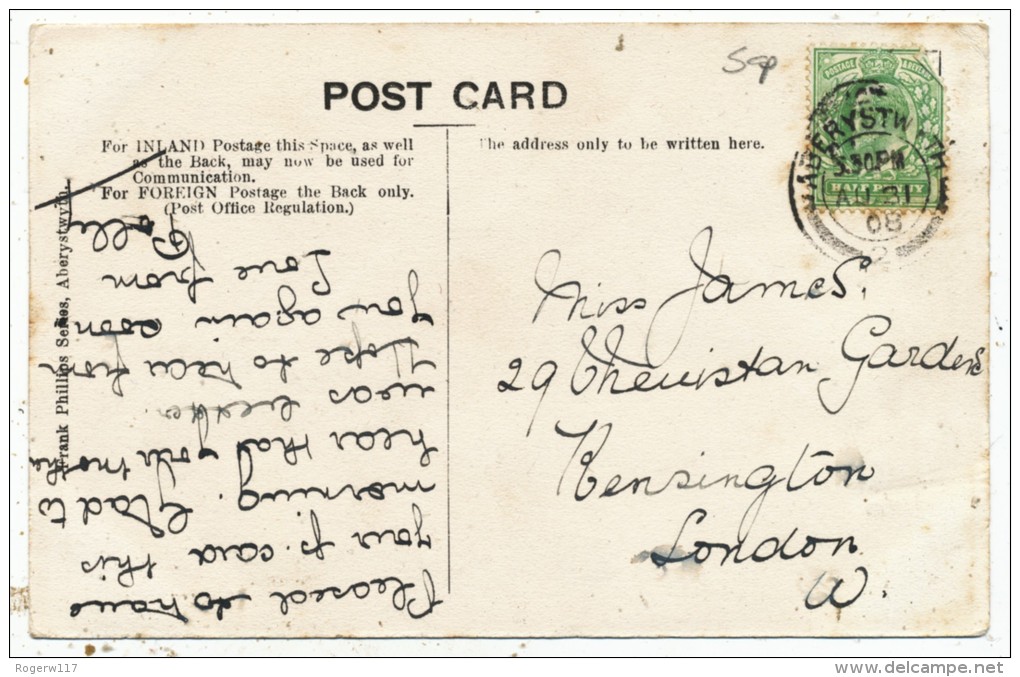 POST CARD
For INLAND Postage this Space, as well
as the Back, may now be used for
Communication.
For FOREIGN Postage the Back only.
(Post Office Regulation.)
The address only to be written here.
POSTAGE & REVENUE
HALFPENNY
ABERYSTWYTH
5.30PM
AU 31
08
2
Miss James.
29 Cheniston Gardens
Kensington
London
W.
Pleased to have
your p. card this
morning. Glad to
hear that your mother
was better.
Hope to hear from
you again soon
Love from
Polly
Frank Phillips Series, Aberystwyth.
Rogerw117
delcampe.net